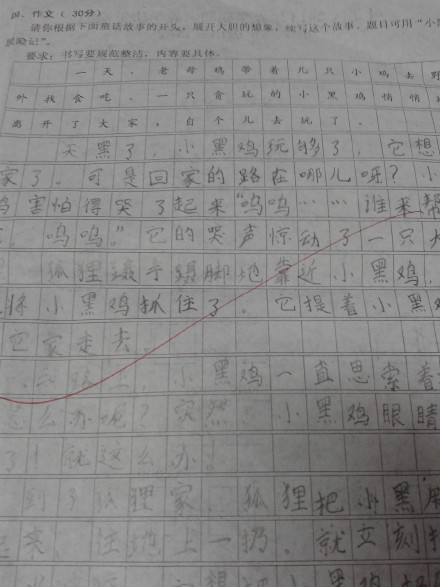 四、作文（30分）
请你根据下面童话故事的开头，展开大胆的想象，续写这个故事。题目可用“小黑
险记”。
要求：书写要规范整洁，内容要具体。
一天，老母鸡带着几只小鸡去野
外找食吃。一只贪玩的小黑鸡悄悄
离开了大家，自个儿去玩了。
天黑了，小黑鸡玩够了，它想
家了。可是回家的路在哪儿呀？小
鸡害怕得哭了起来“呜呜……谁来帮
呜呜。”它的哭声惊动了一只
狐狸蹑手蹑脚地靠近小黑鸡，
将小黑鸡抓住了。它提着小黑
它家走去。
，小黑鸡一直思索着
怎么办呢？突然，小黑鸡眼睛
了！就这么办！
到了狐狸家，狐狸把小黑
往地上一扔，就立刻